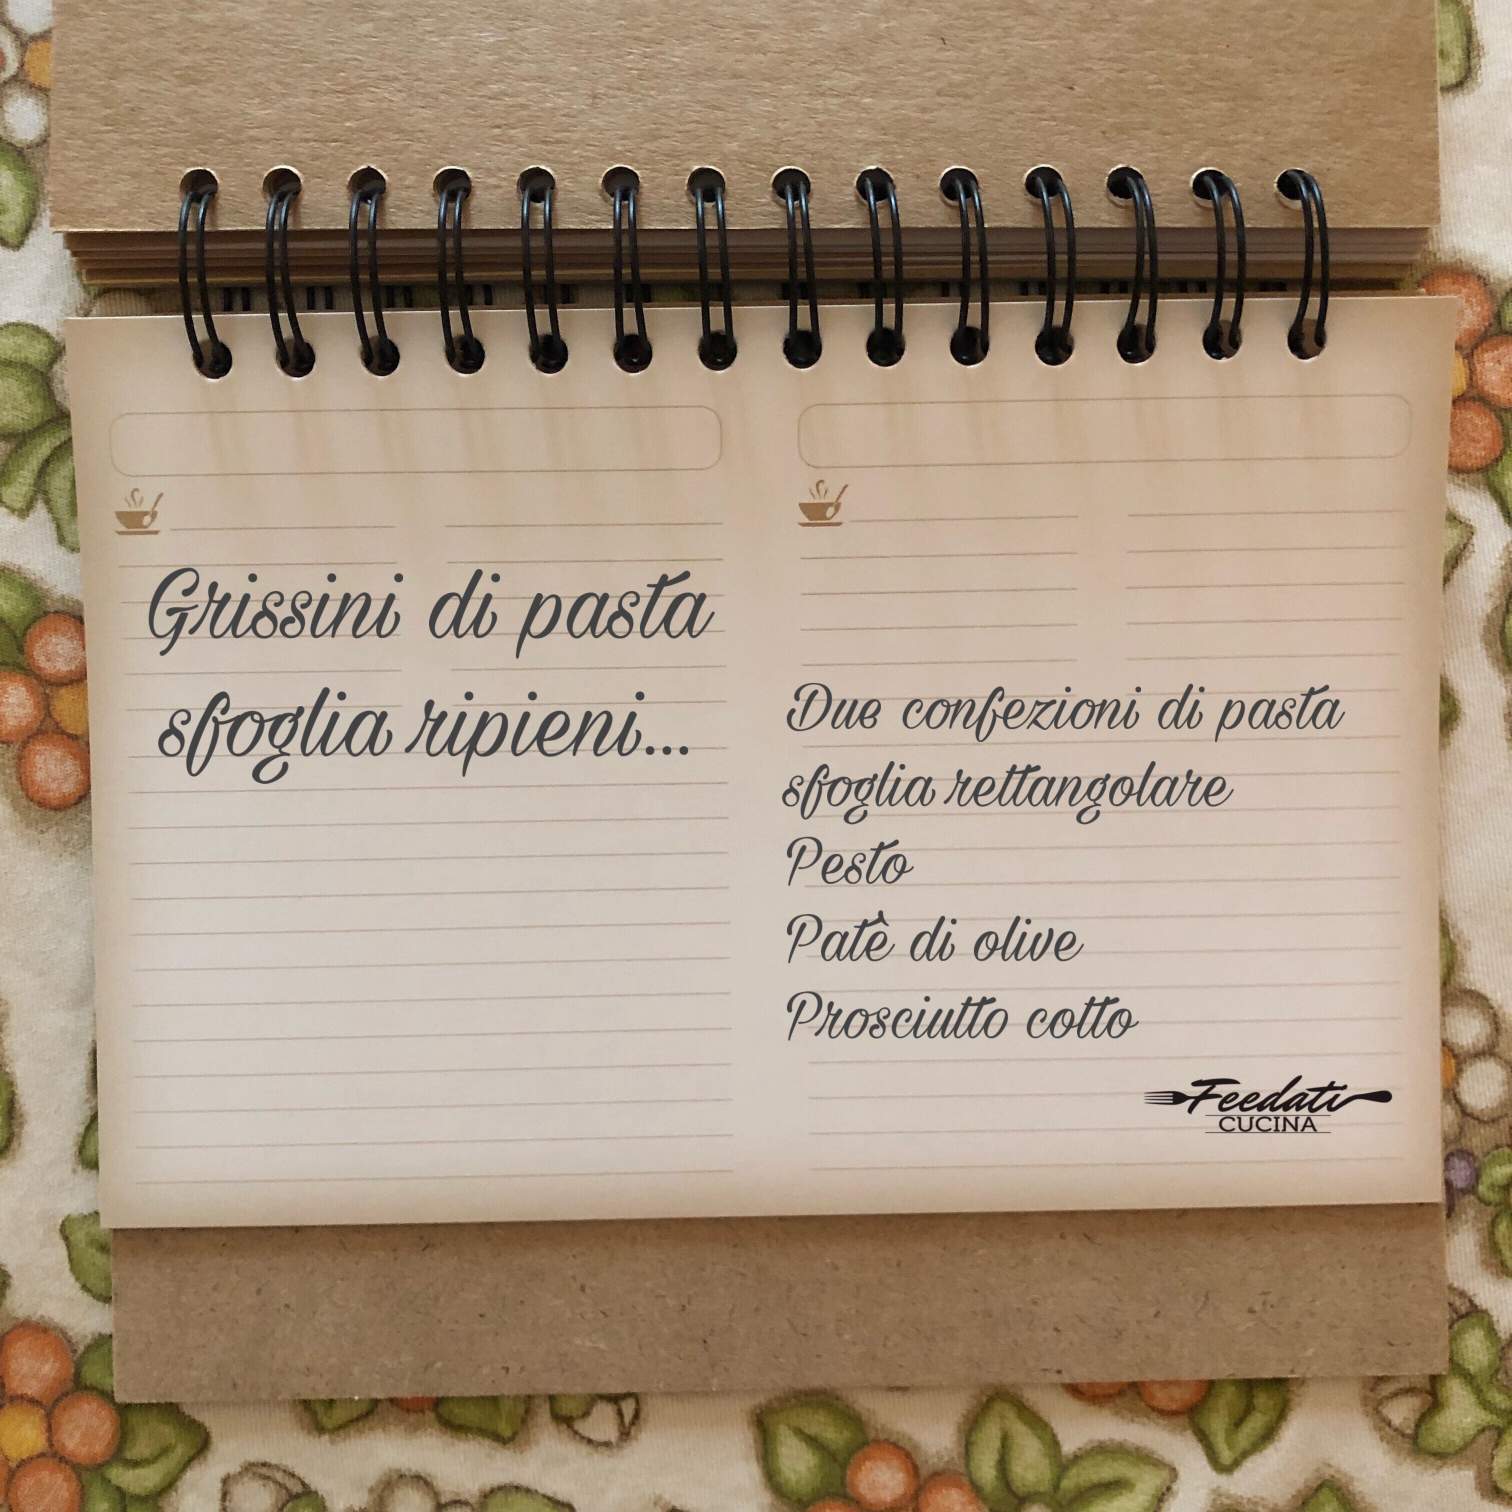 Grissini di pasta
sfoglia ripieni...
Due confezioni di pasta
sfoglia rettangolare
Pesto
Patè di olive
Prosciutto cotto
Feedati
CUCINA